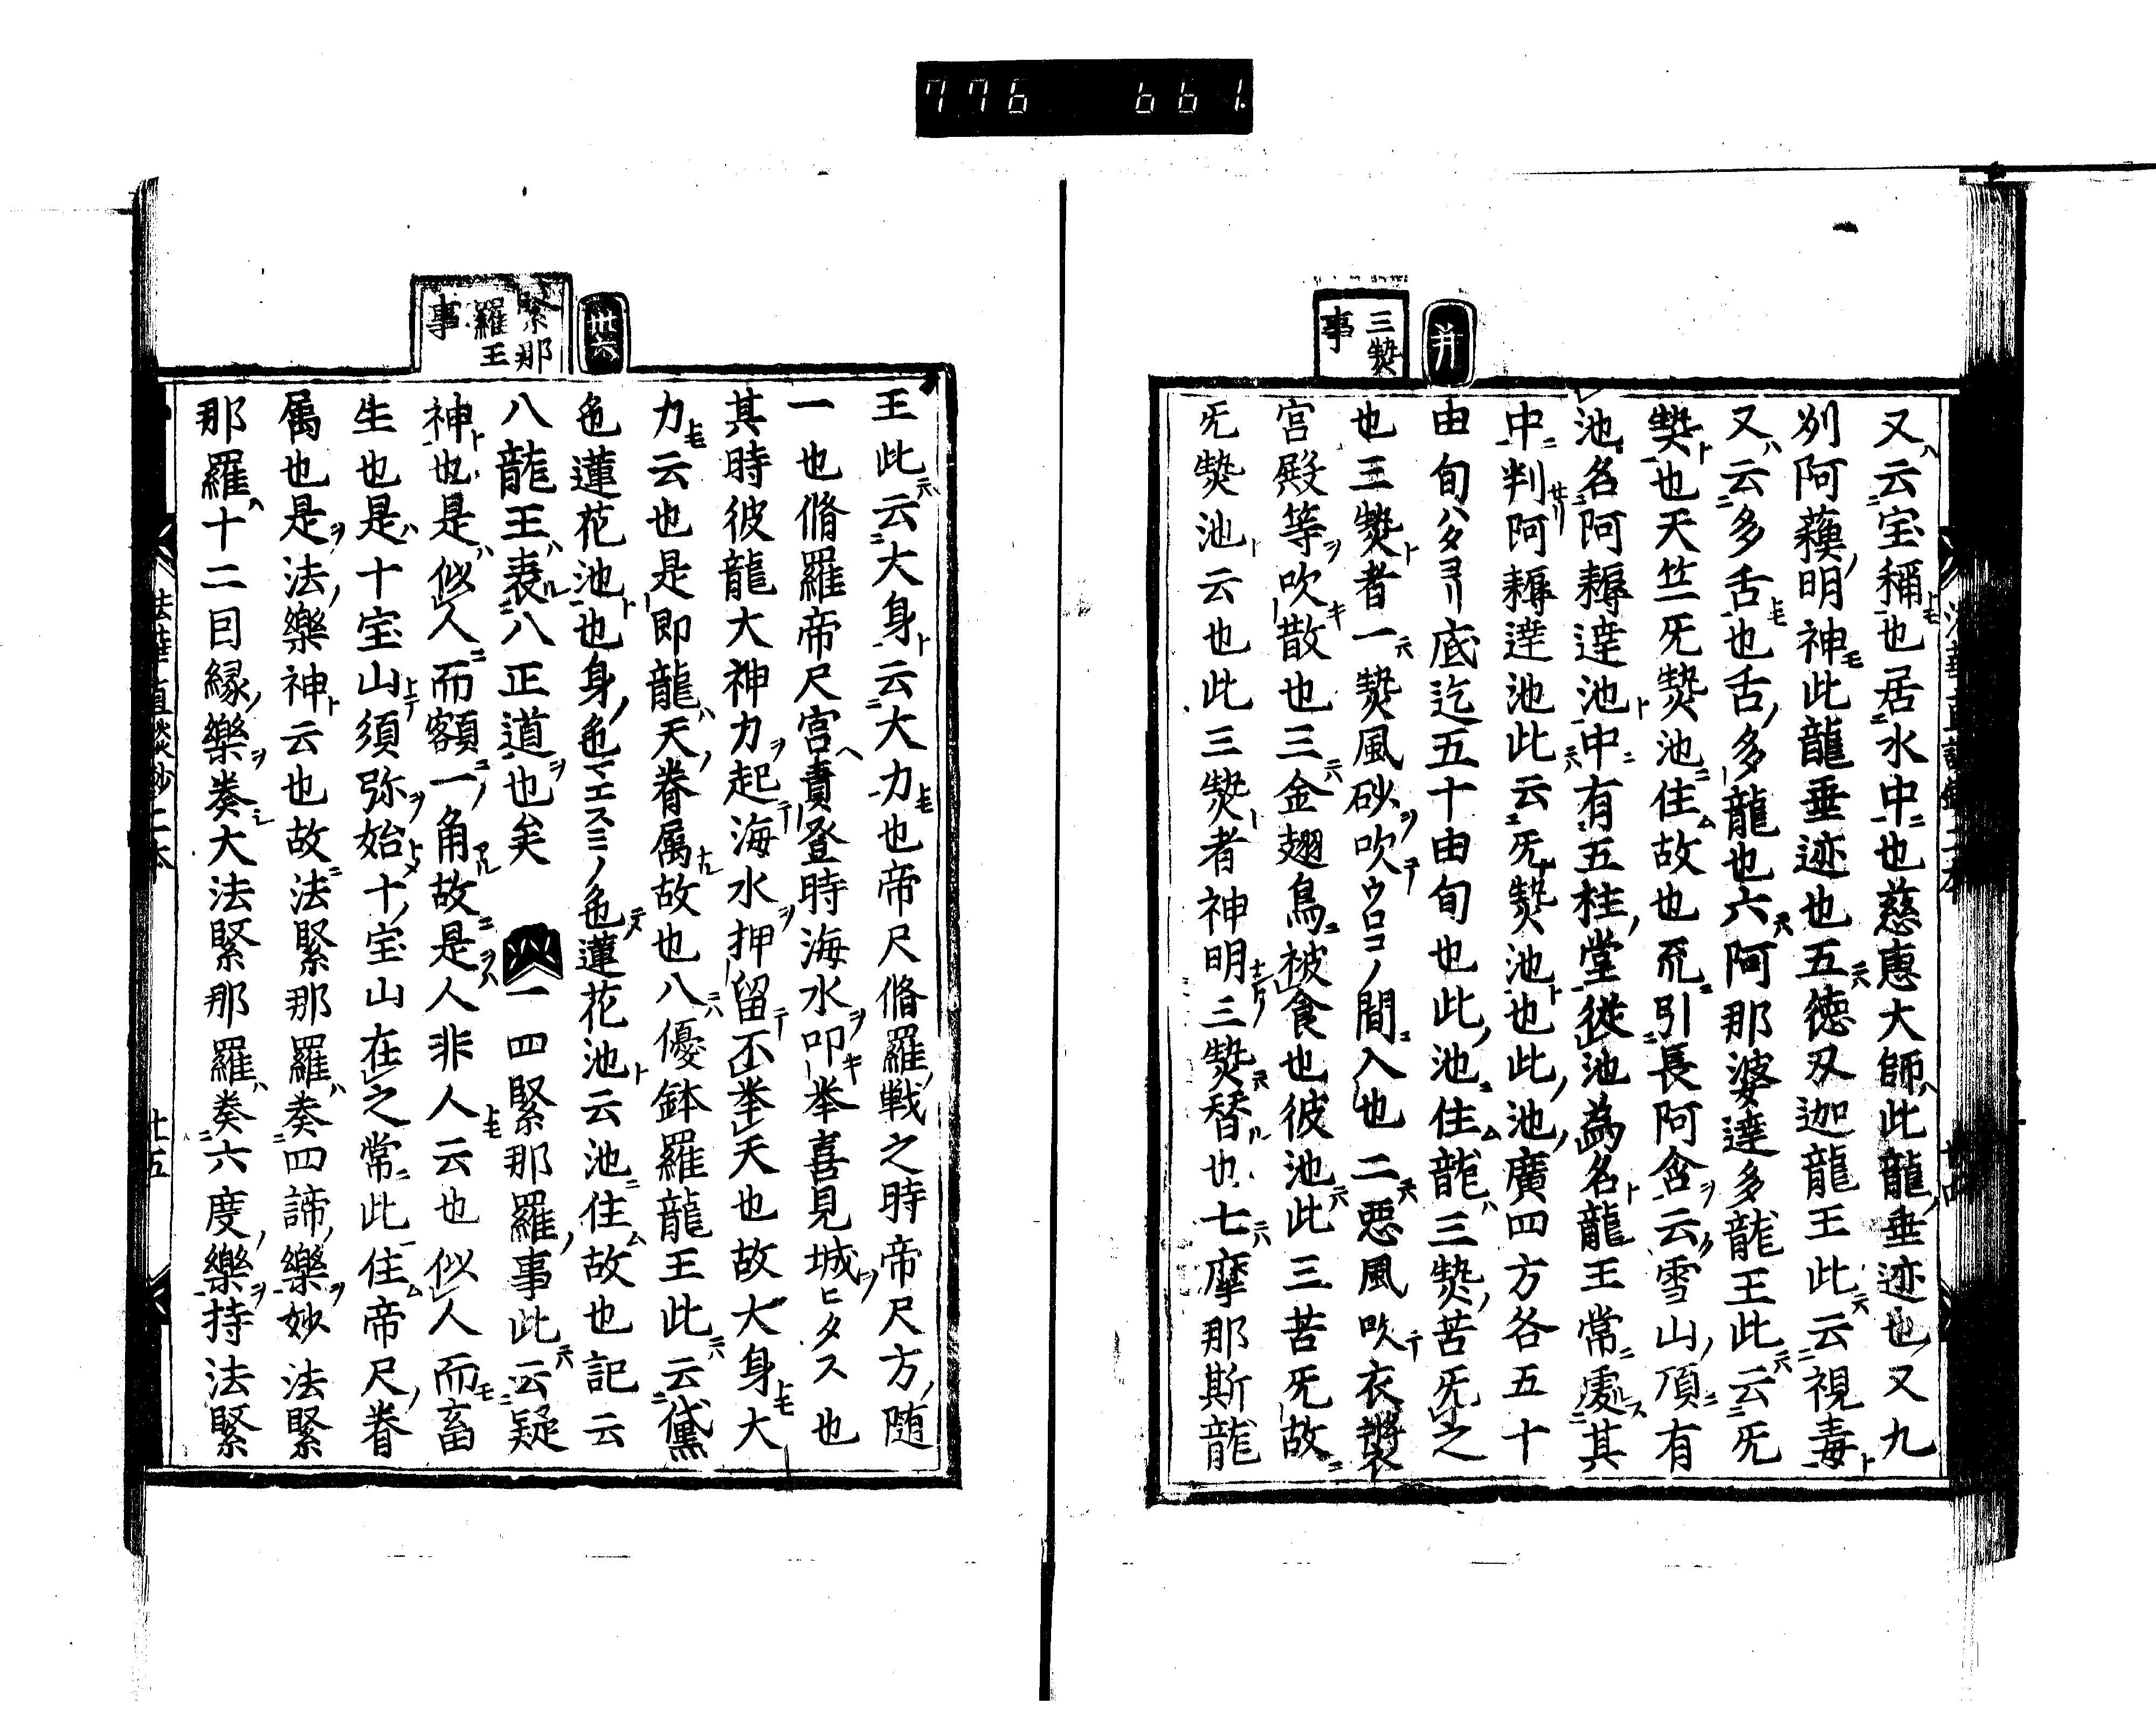 776 661.
三𤍠事
又云宝稱也居水中也慈恵大師此龍垂迹也又九
州阿蘓明神此龍垂迹也五徳叉迦龍王此云視毒
又云多舌也舌多多龍也六阿那婆達多龍王此云无
𤍠也天竺无𤍠池住故也疏引長阿含云雪山頂有
池名阿耨達池中有五柱堂從池為名龍王常處其
中判阿耨達池此云无𤍠池也此池廣四方各五十
由旬ハタヨリ底迄五十由旬也此池住龍三𤍠苦无之
也三𤍠者一𤍠風砂吹ウロコノ間入也二悪風吹衣裳
宮殿等吹散也三金翅鳥被食也彼池此三苦无故
无𤍠池云也此三𤍠者神明三𤍠替也七摩那斯龍
緊那羅王事
卅六
王此云大身云大力也帝尺脩羅戦之時帝尺方随
一也脩羅帝尺宮責登時海水叩挙喜見城ヒタス也
其時彼龍大神力起海水押留不挙天也故大身大
力云也是即龍天眷属故也八優鉢羅龍王此云黛
色蓮花池也身色マエスミノ色蓮花池云池住故也記云
八龍王表八正道也矣 一四緊那羅事此云疑
神也是似人而額一角故是人非人云也似人而畜
生也是十宝山須弥始十宝山在之常此住帝尺眷
属也是法樂神云也故法緊那羅奏四諦樂妙法緊
那羅十二因縁樂奏大法緊那羅奏六度樂持法緊
法華直談鈔二本 廿五